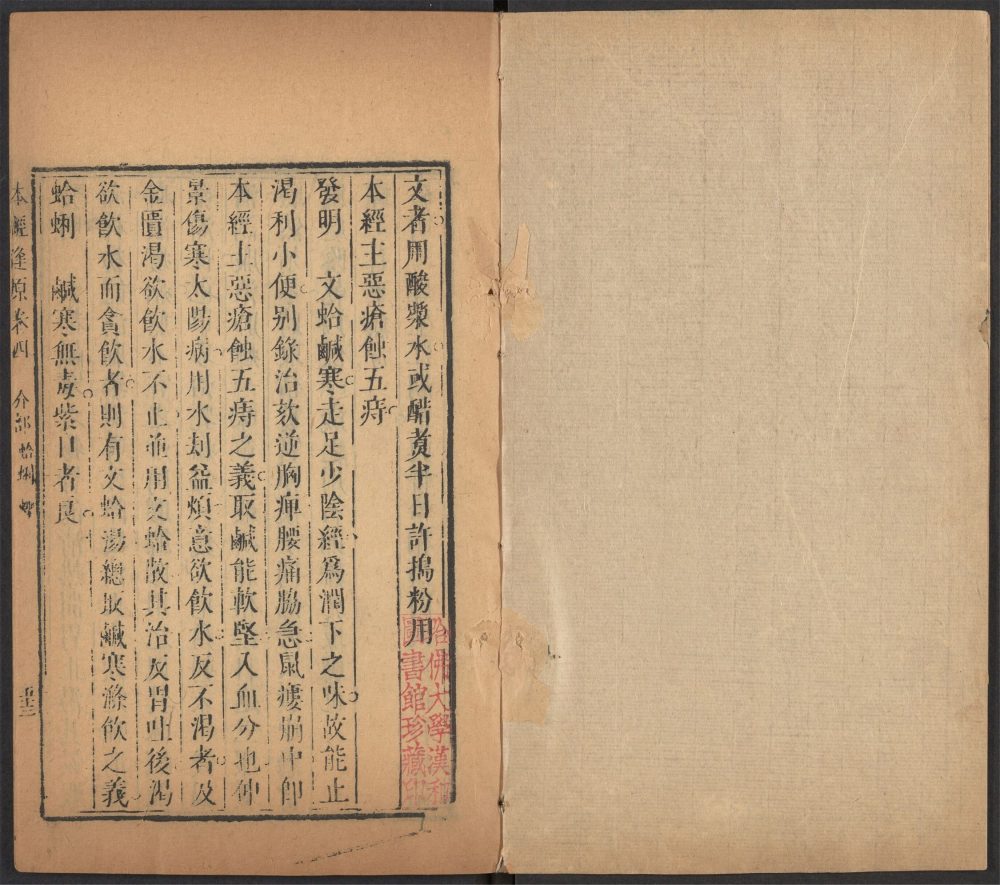 文者用酸漿水或醋煑半日許搗粉用
本經主惡瘡蝕五痔
發明　文蛤鹹寒走足少陰經爲潤下之味故能止
渴利小便别錄治欬逆胸痺腰痛脇急鼠瘻崩中卽
本經主惡瘡蝕五痔之義取鹹能軟堅入血分也仲
景傷寒太陽病用水刦益煩意欲飲水反不渴者及
金匱渴欲飲水不止並用文蛤散其治反胃吐後渴
欲飲水而貪飲者則有文蛤湯總取鹹寒滌飲之義
蛤蜊　鹹寒無毒紫口者良
本經逢原卷四　介部　蛤蜊
哈佛大學漢和
圖書館珍藏印